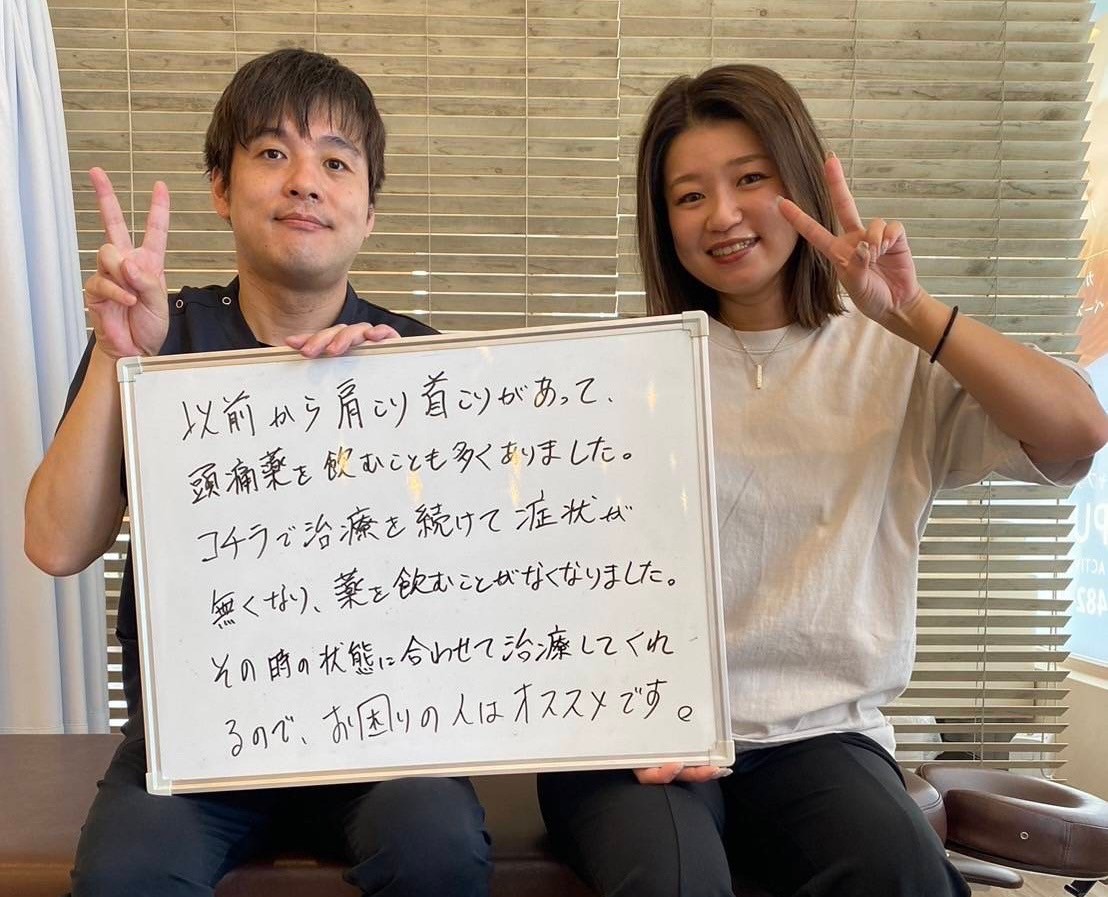 以前から肩こり首こりがあって、
頭痛薬を飲むことも多くありました。
コチラで治療を続けて症状が
無くなり、薬を飲むことがなくなりました。
その時の状態に合わせて治療してくれ
るので、お困りの人はオススメです。
PU
ACTI
482